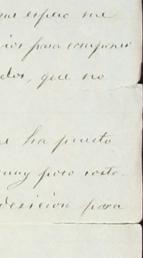 espero me
para componer
dos, que no
ha puesto
muy poco costo.
desicion para